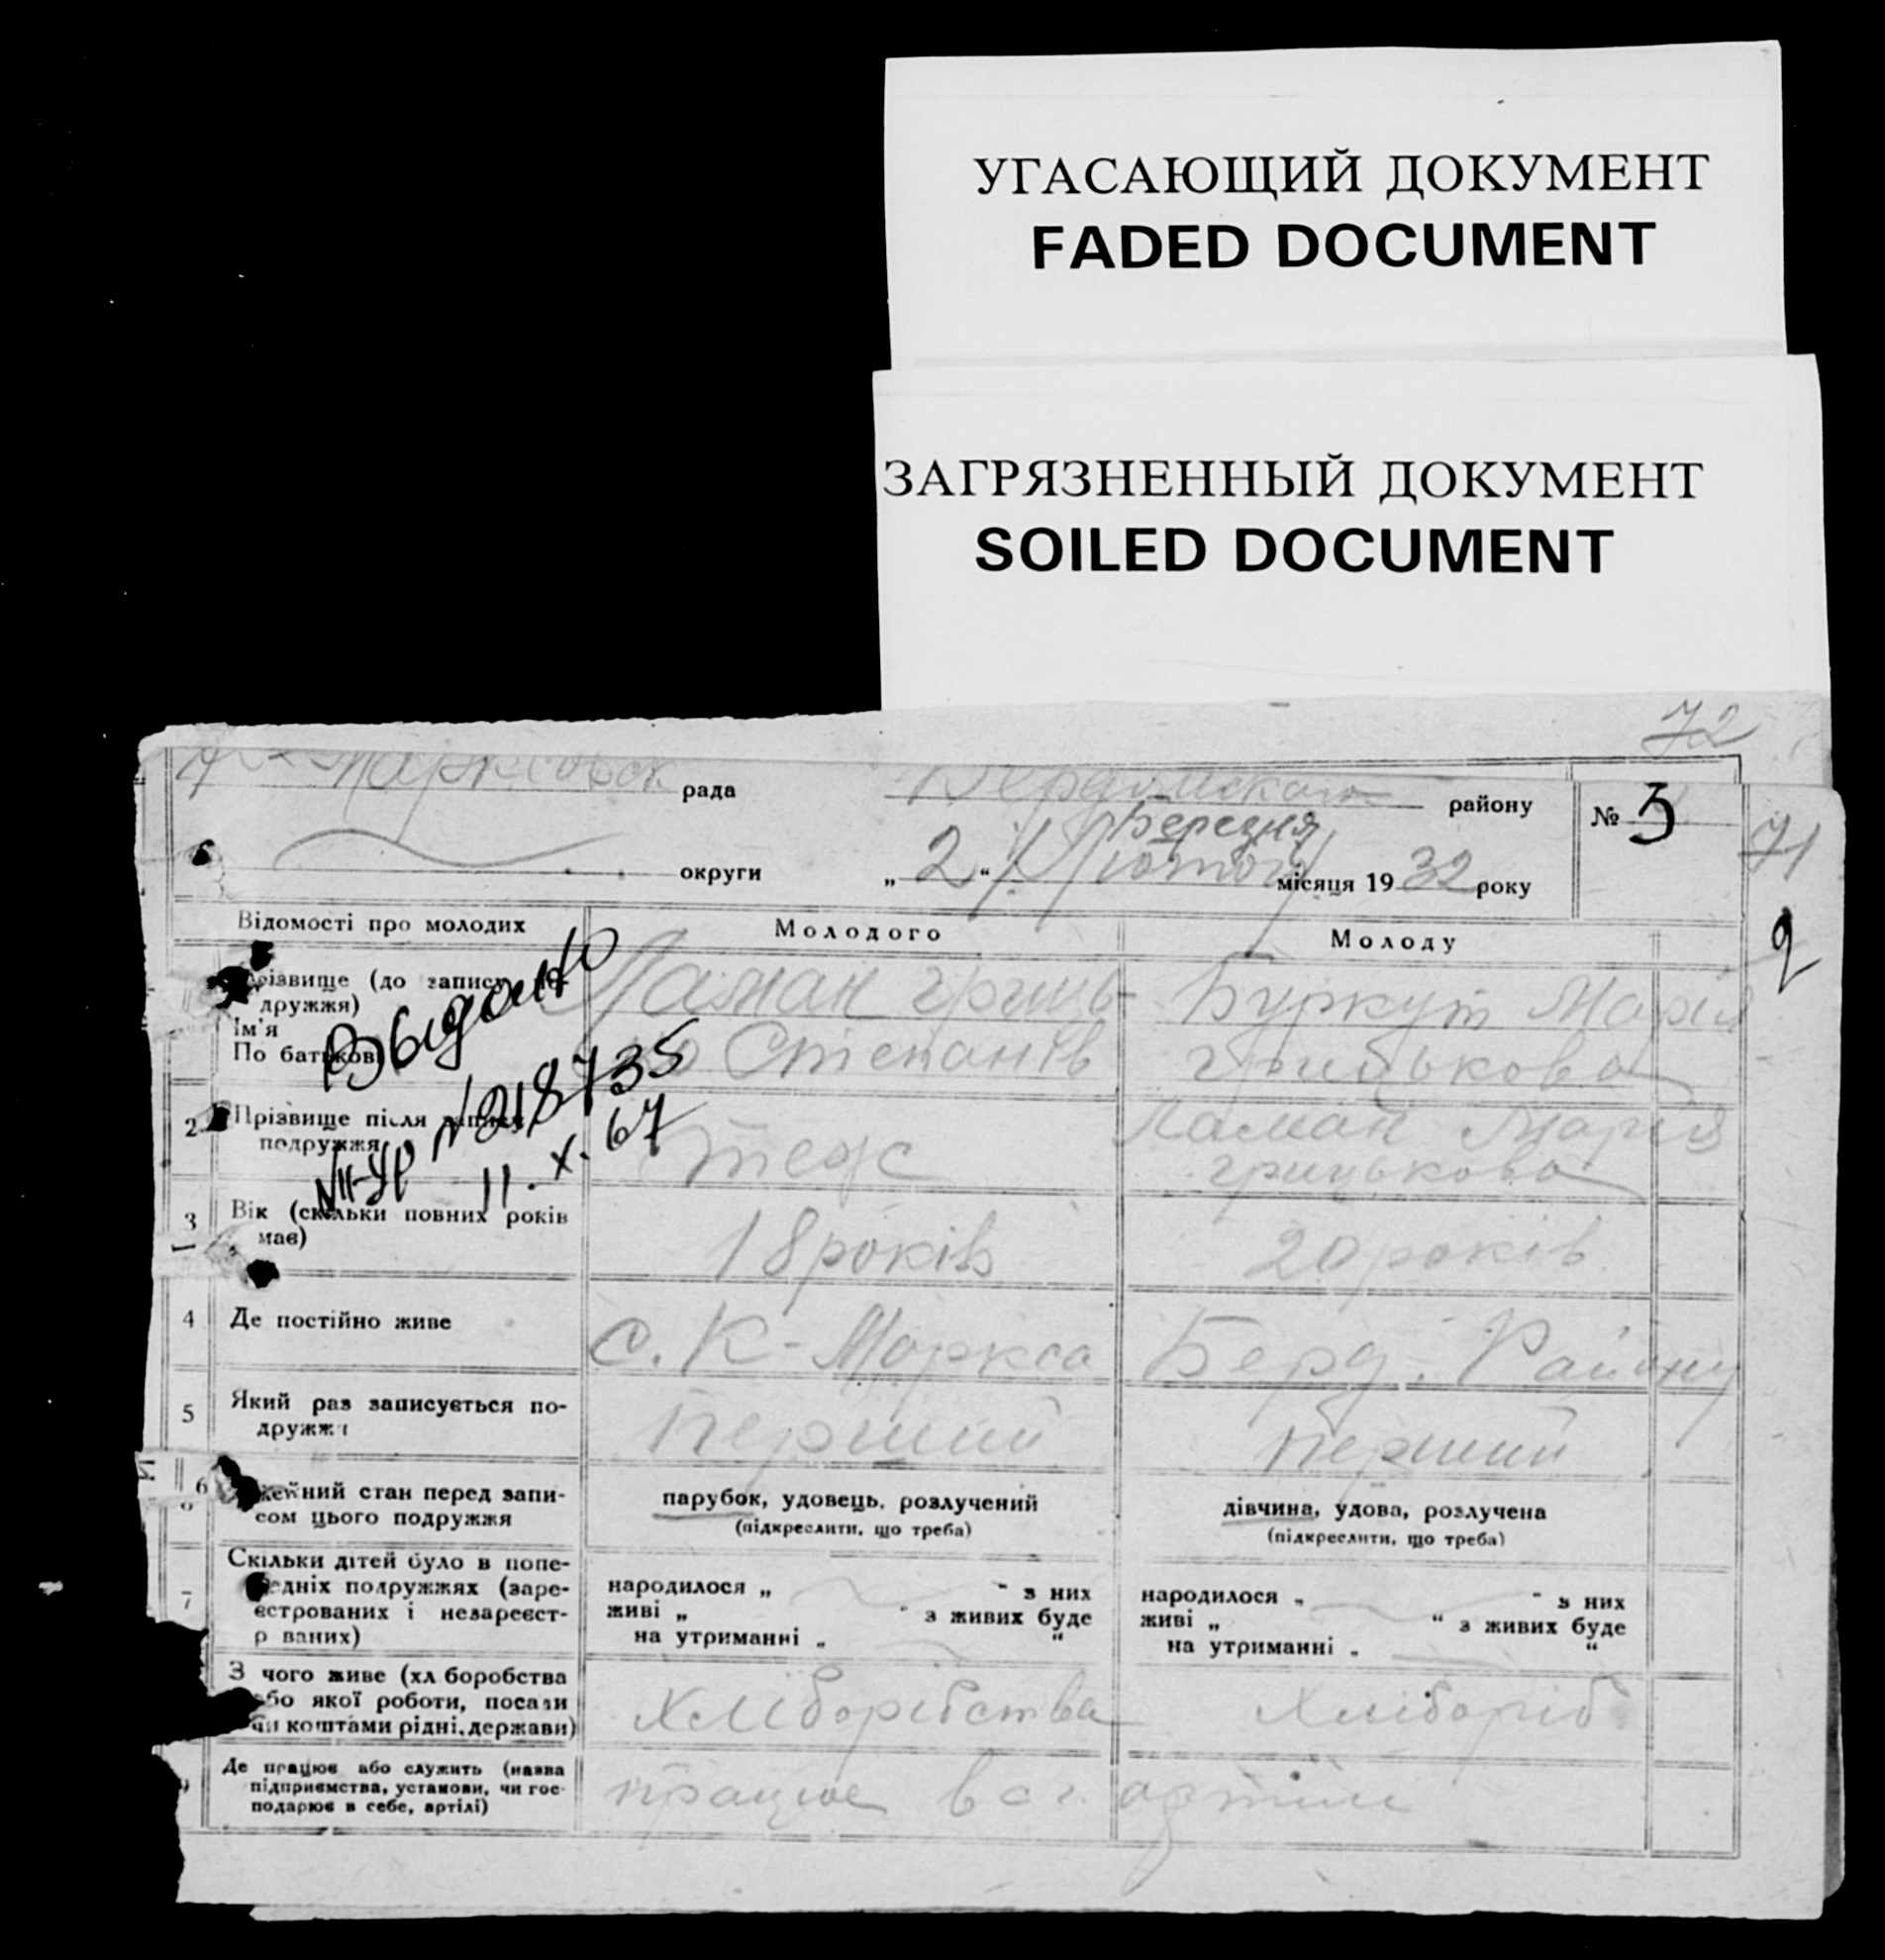 УГАСАЮЩИЙ ДОКУМЕНТ
FADED DOCUMENT
ЗАГРЯЗНЕННЫЙ ДОКУМЕНТ
SOILED DOCUMENT
72
рада
району
№ 3
71
Березня
округи „ 2 “ Лютого місяця 1932 року
2
Відомості про молодих
Молодого
Молоду
різвище (до запису
дружжя)
Ім'я
По батьков
Ламан Гриць-
ко Степанів
Буркут Марія
Грицькова
2 Прізвище після
подружжя
теж
Ламан Марія
Грицькова
№ 018735
11. X. 67
3 Вік (скільки повних років
має)
18 років
20 років
4 Де постійно живе
с. К-Маркса Берд. Району
5 Який раз записується по-
дружж
Перший
Перший
6
ний стан перед запи-
сом цього подружжя
парубок, удовець, розлучений
(підкреслити, що треба)
дівчина, удова, розлучена
(підкреслити, що треба)
7
Скільки дітей було в попе-
едніх подружжях (заре-
єстрованих і незареєст-
р ваних)
народилося „ “ з них
живі „ “ з живих буде
на утриманні „ “
народилося „ “ з них
живі „ “ з живих буде
на утриманні „ “
З чого живе (хл боробства
бо якої роботи, посади
чи коштами рідні, держави)
Хліборобства
Хлібороб
Де працює або служить (назва
підприємства, установи, чи гос-
подарює в себе, артілі)
працює в с.г. артіли